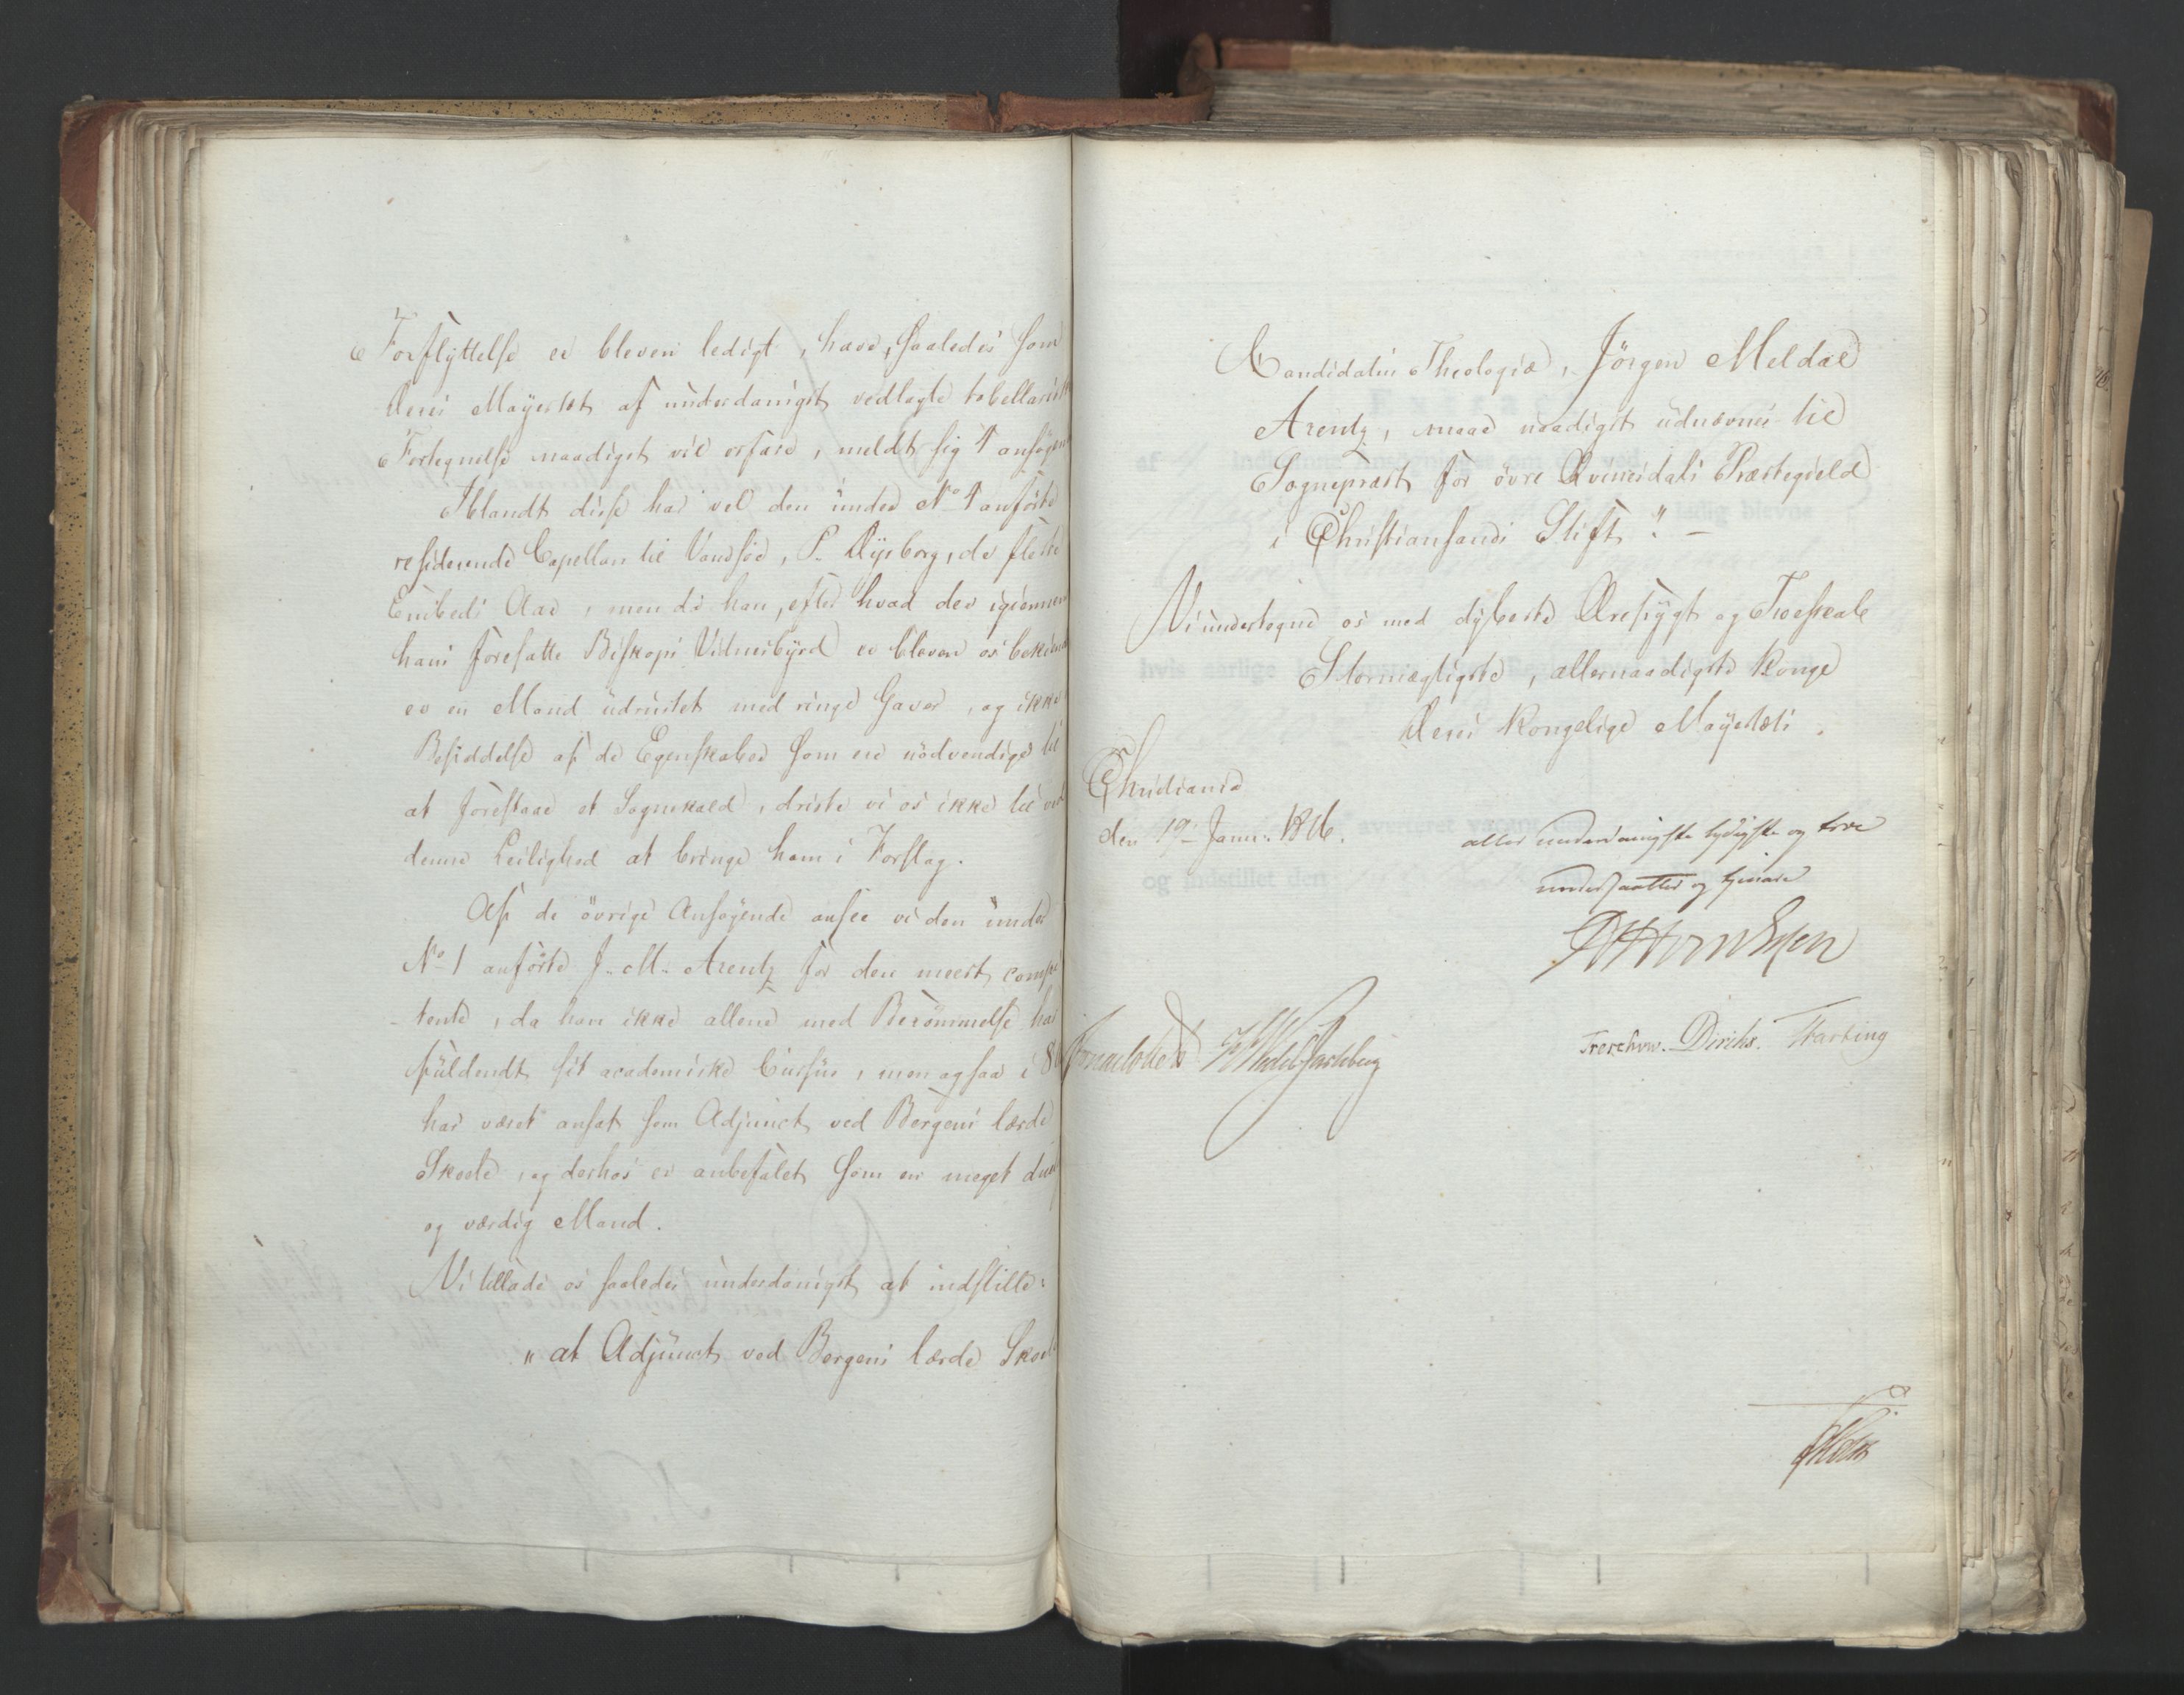 Forflyttelse er bleven ledigt, have, saaledes som
Deres Mayestæt af underdanigst vedlagte tabellarisk
Fortegnelse naadigst vil erfare, meldt sig 4 ansøgen
Iblandt disse har vel den under No 4 anførte
residerende Capellan til Vandsøe, P. Dysborg, de fleste
Embeds Aar, men da han, efter hvad der igiennem
hans foresatte Biskops Vidnesbyrd er bleven os bekiendt
er en Mand udrustet med ringe Gaver, og ikke
Besiddelse af de Egenskaber som ere nødvendige til
at forestaae et Sognekald, driste vi os ikke til ved
denne Leilighed at bringe ham i Forslag.
Af de øvrige Ansøgende ansee vi den under
No 1 anførte J. M. Arentz for den meest compe
-tente, da han ikke allene med Berømmelse har
fuldendt sit academiske Cursus, men ogsaa i 8
har været ansat som Adjunct ved Bergens lærde
Skole, og derhos er anbefalet som en meget due
og værdig Mand.
Vi tillade os saaledes underdanigst at indstille:
"at Adjunct ved Bergens lærde Skole
Candidatus Theologiæ, Jörgen Meldal
Arentz, maae naadigst udnævnes til
Sognepræst for øvre Qvinesdals Præstegield
i Christiansands Stift". -
Vi undertegne os med dybeste Ærefrygt og Troeskab
Stormægtigste, allernaadigste Konge
Deres Kongelige Mayestæts
Christiania
den 19de Janu: 1816.
aller underdanigste lydigste og troe
undersaatter og tjenere
Sommerhielm Wedel Jarlsberg
Treschow. Diriks. Harking